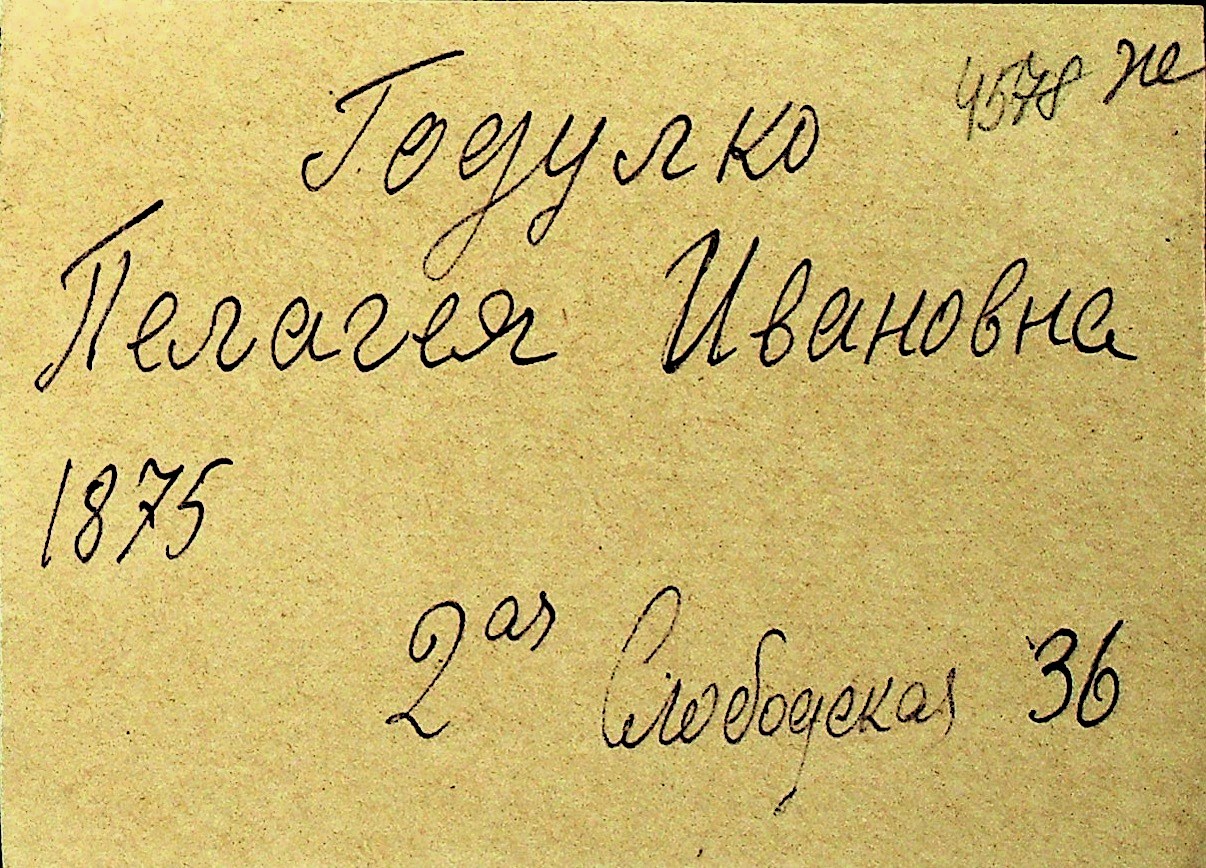 4578 не
Годулко
Пелагея Ивановна
1875
2ая Слободская 36